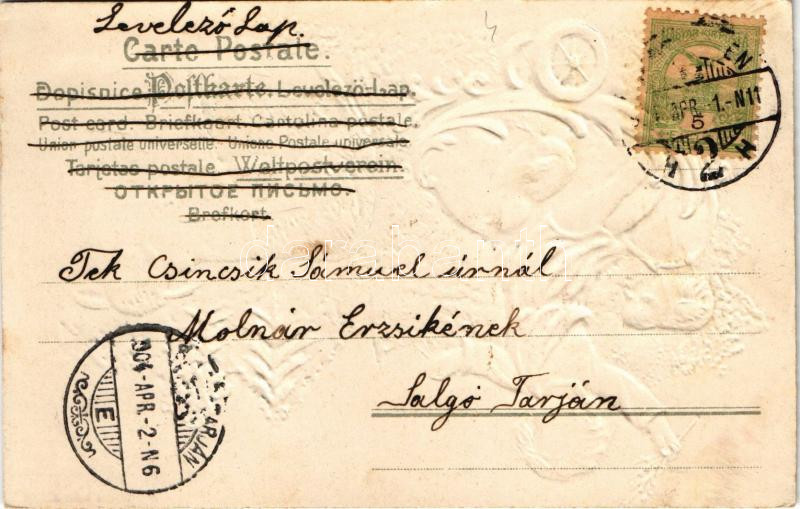 Levelező Lap.
Carte Postale.
Dopisnice Postkarte. Levelező-Lap.
Post-card. Briefkaart. Cartolina postale.
Union postale universelle. Unione Postale universale.
Tarjetas postale. Weltpostverein.
ОТКРЫТОЕ ПИСЬМО.
Brefkort.
MAGYAR KIR
EN
APR. 1.-N11
5
2
H
K
darabanth
Tek Csincsik Sámuel úrnál
Molnár Erzsikének
Salgó Tarján
904-APR.-2-N6
E
ARJÁN